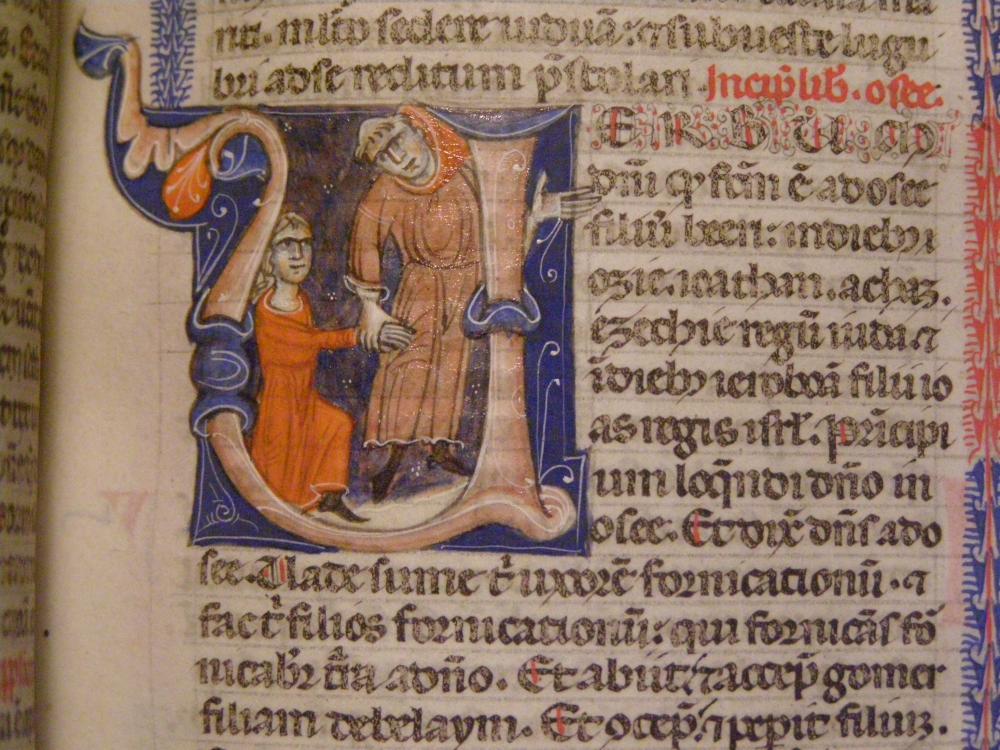 nti. mlto sedere uiduā: ⁊ sub ueste lugu
bri ad se reditum p̄stolari. Incip̄ lib̄. osee.
ERBUM
dn̄i qḍ fc̄m ē ad osee
filiū beeri: in dieb;
ozie. ioathan. achaz.
ezechie regū iuda ⁊
ī dieb; ieroboā filii io
as regis isrl̄. principi
um loq̄ndi dn̄o in
osee. Et dix̄ dn̄s ad o
see. Uade sume t̄ uxorē fornicationū. ⁊
fac t̄ filios fornicationū: qui fornicās fo
nicabr̄ t̄ra a dn̄o. Et abiit ⁊ accep̄ gomer
filiam debelaym. Et ↄcep̄. ⁊ pepit filiuȝ.